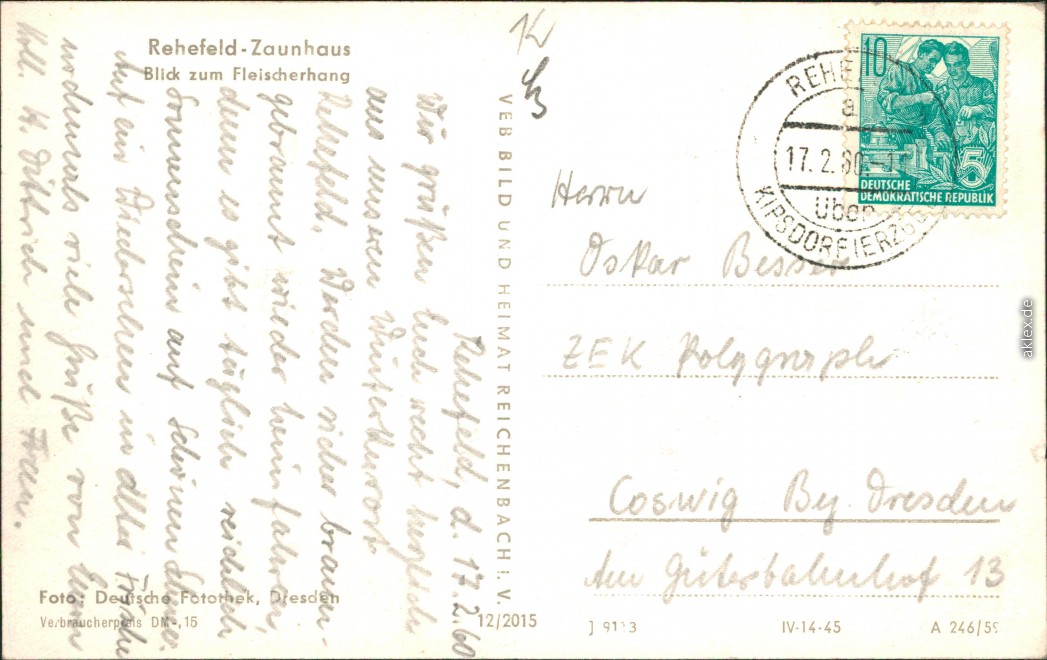 Rehefeld-Zaunhaus
Blick zum Fleischerhang
Rehefeld, d. 17.2.60
Wir grüßen Euch recht herzlich
aus unserem Winterkurort
Rehefeld. Werden sicher braun-
gebrannt wieder heimfahren,
denn es gibt täglich reichlich
Sonnenschein auf schönem Schnee.
Auf ein Wiedersehen in alter Frische
nochmals viele Grüße von Eurem
Koll. H. Dittrich und Frau.
Foto: Deutsche Fotothek, Dresden
Verbraucherpreis DM -,15
VEB BILD UND HEIMAT REICHENBACH i. V.
12/2015
J 9113
IV-14-45
A 246/59
10
5
DEUTSCHE
DEMOKRATISCHE REPUBLIK
REHE
a
17.2.60.-1
über
KIPSDORF (ERZGEB
Herrn
Oskar Besser
ZEK Polygraph
Coswig Bz. Dresden
Am Güterbahnhof 13
aklex.de